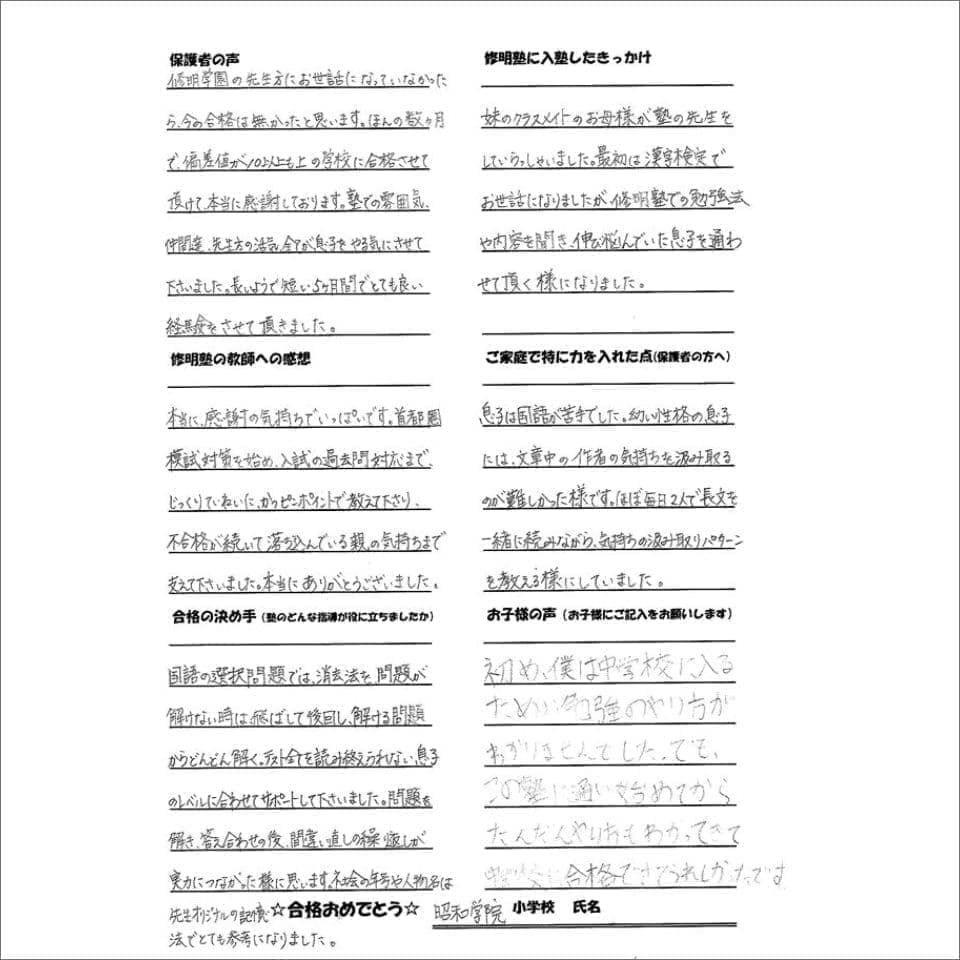 保護者の声
修明学園の先生方にお世話になっていなかった
ら、今の合格は無かったと思います。ほんの数ヶ月
で、偏差値が10以上も上の学校に合格させて
頂けて、本当に感謝しております。塾での雰囲気、
仲間達、先生方の活気全てが息子をやる気にさせて
下さいました。長いようで短い5ヶ月間でとても良い
経験をさせて頂きました。
修明塾の教師への感想
本当に、感謝の気持ちでいっぱいです。首都圏
模試対策を始め、入試の過去問対応まで、
じっくりていねいに、かつピンポイントで教えて下さり、
不合格が続いて落ち込んでいる親の気持ちまで
支えて下さいました。本当にありがとうございました。
合格の決め手(塾のどんな指導が役に立ちましたか)
国語の選択問題では、消去法を、問題が
解けない時は飛ばして後回し、解ける問題
からどんどん解く。テスト全てを読み終えられない息子
のレベルに合わせてサポートして下さいました。問題を
解き、答え合わせの後、間違い直しの繰り返しが
実力につながった様に思います。社会の年号や人物名は
先生オリジナルの記憶
法でとても参考になりました。
修明塾に入塾したきっかけ
妹のクラスメイトのお母様が塾の先生を
していらっしゃいました。最初は漢字検定で
お世話になりましたが、修明塾での勉強法
や内容を聞き、伸び悩んでいた息子を通わ
せて頂く様になりました。
ご家庭で特に力を入れた点(保護者の方へ)
息子は国語が苦手でした。幼い性格の息子
には、文章中の作者の気持ちを汲み取る
のが難しかった様です。ほぼ毎日2人で長文を
一緒に読みながら、気持ちの汲み取りパターン
を教える様にしていました。
お子様の声(お子様にご記入をお願いします)
初め、僕は中学校に入る
ための勉強のやり方が
わかりませんでした。でも、
この塾に通い始めてから
だんだんやり方もわかってきて
合格できてうれしかったです
☆合格おめでとう☆ 昭和学院 小学校 氏名